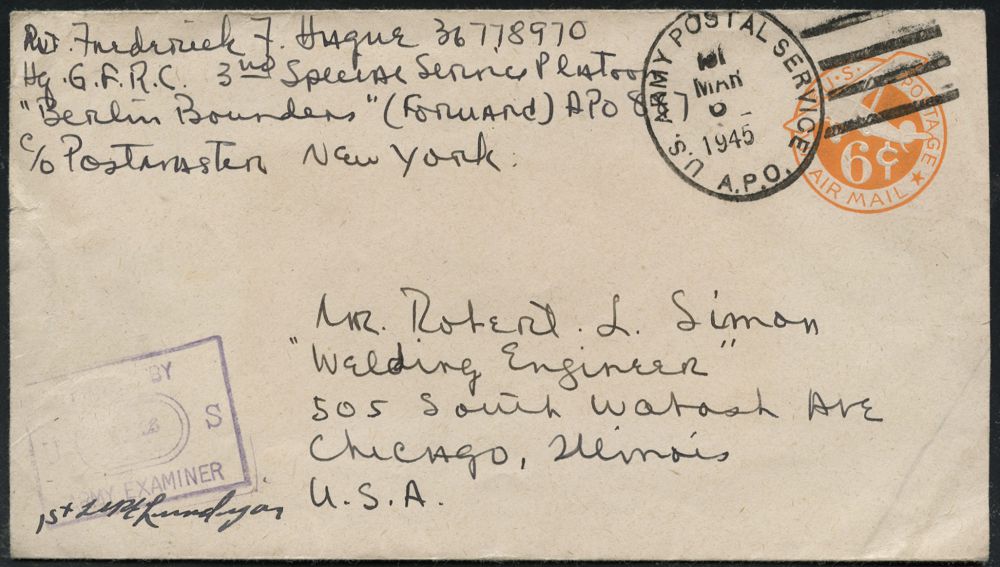 Pvt. Frederick F. Hague 36778970
Hq. G.F.R.C. 3nd Special Service Platoon
"Berlin Bounders" (Forward) APO 887
c/o Postmaster New York.
U.S. ARMY POSTAL SERVICE
MAR
1945
A.P.O.
U.S. POSTAGE
6¢
AIR MAIL
Mr. Robert L. Simon
"Welding Engineer"
505 South Wabash Ave
Chicago, Illinois
U.S.A.
BY
U S
ARMY EXAMINER
1st Lt